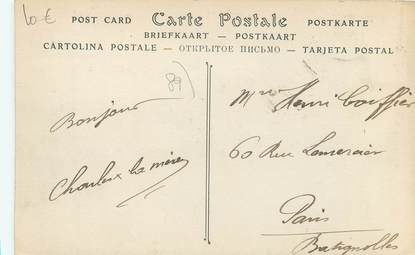 10 €
POST CARD Carte Postale POSTKARTE
BRIEFKAART — POSTKAART
CARTOLINA POSTALE — ОТКРЫТОЕ ПИСЬМО — TARJETA POSTAL
89)
Bonjour
Charles & la mère
Mme Henri Coiffier
60 Rue Lemercier
Paris
Batignolles